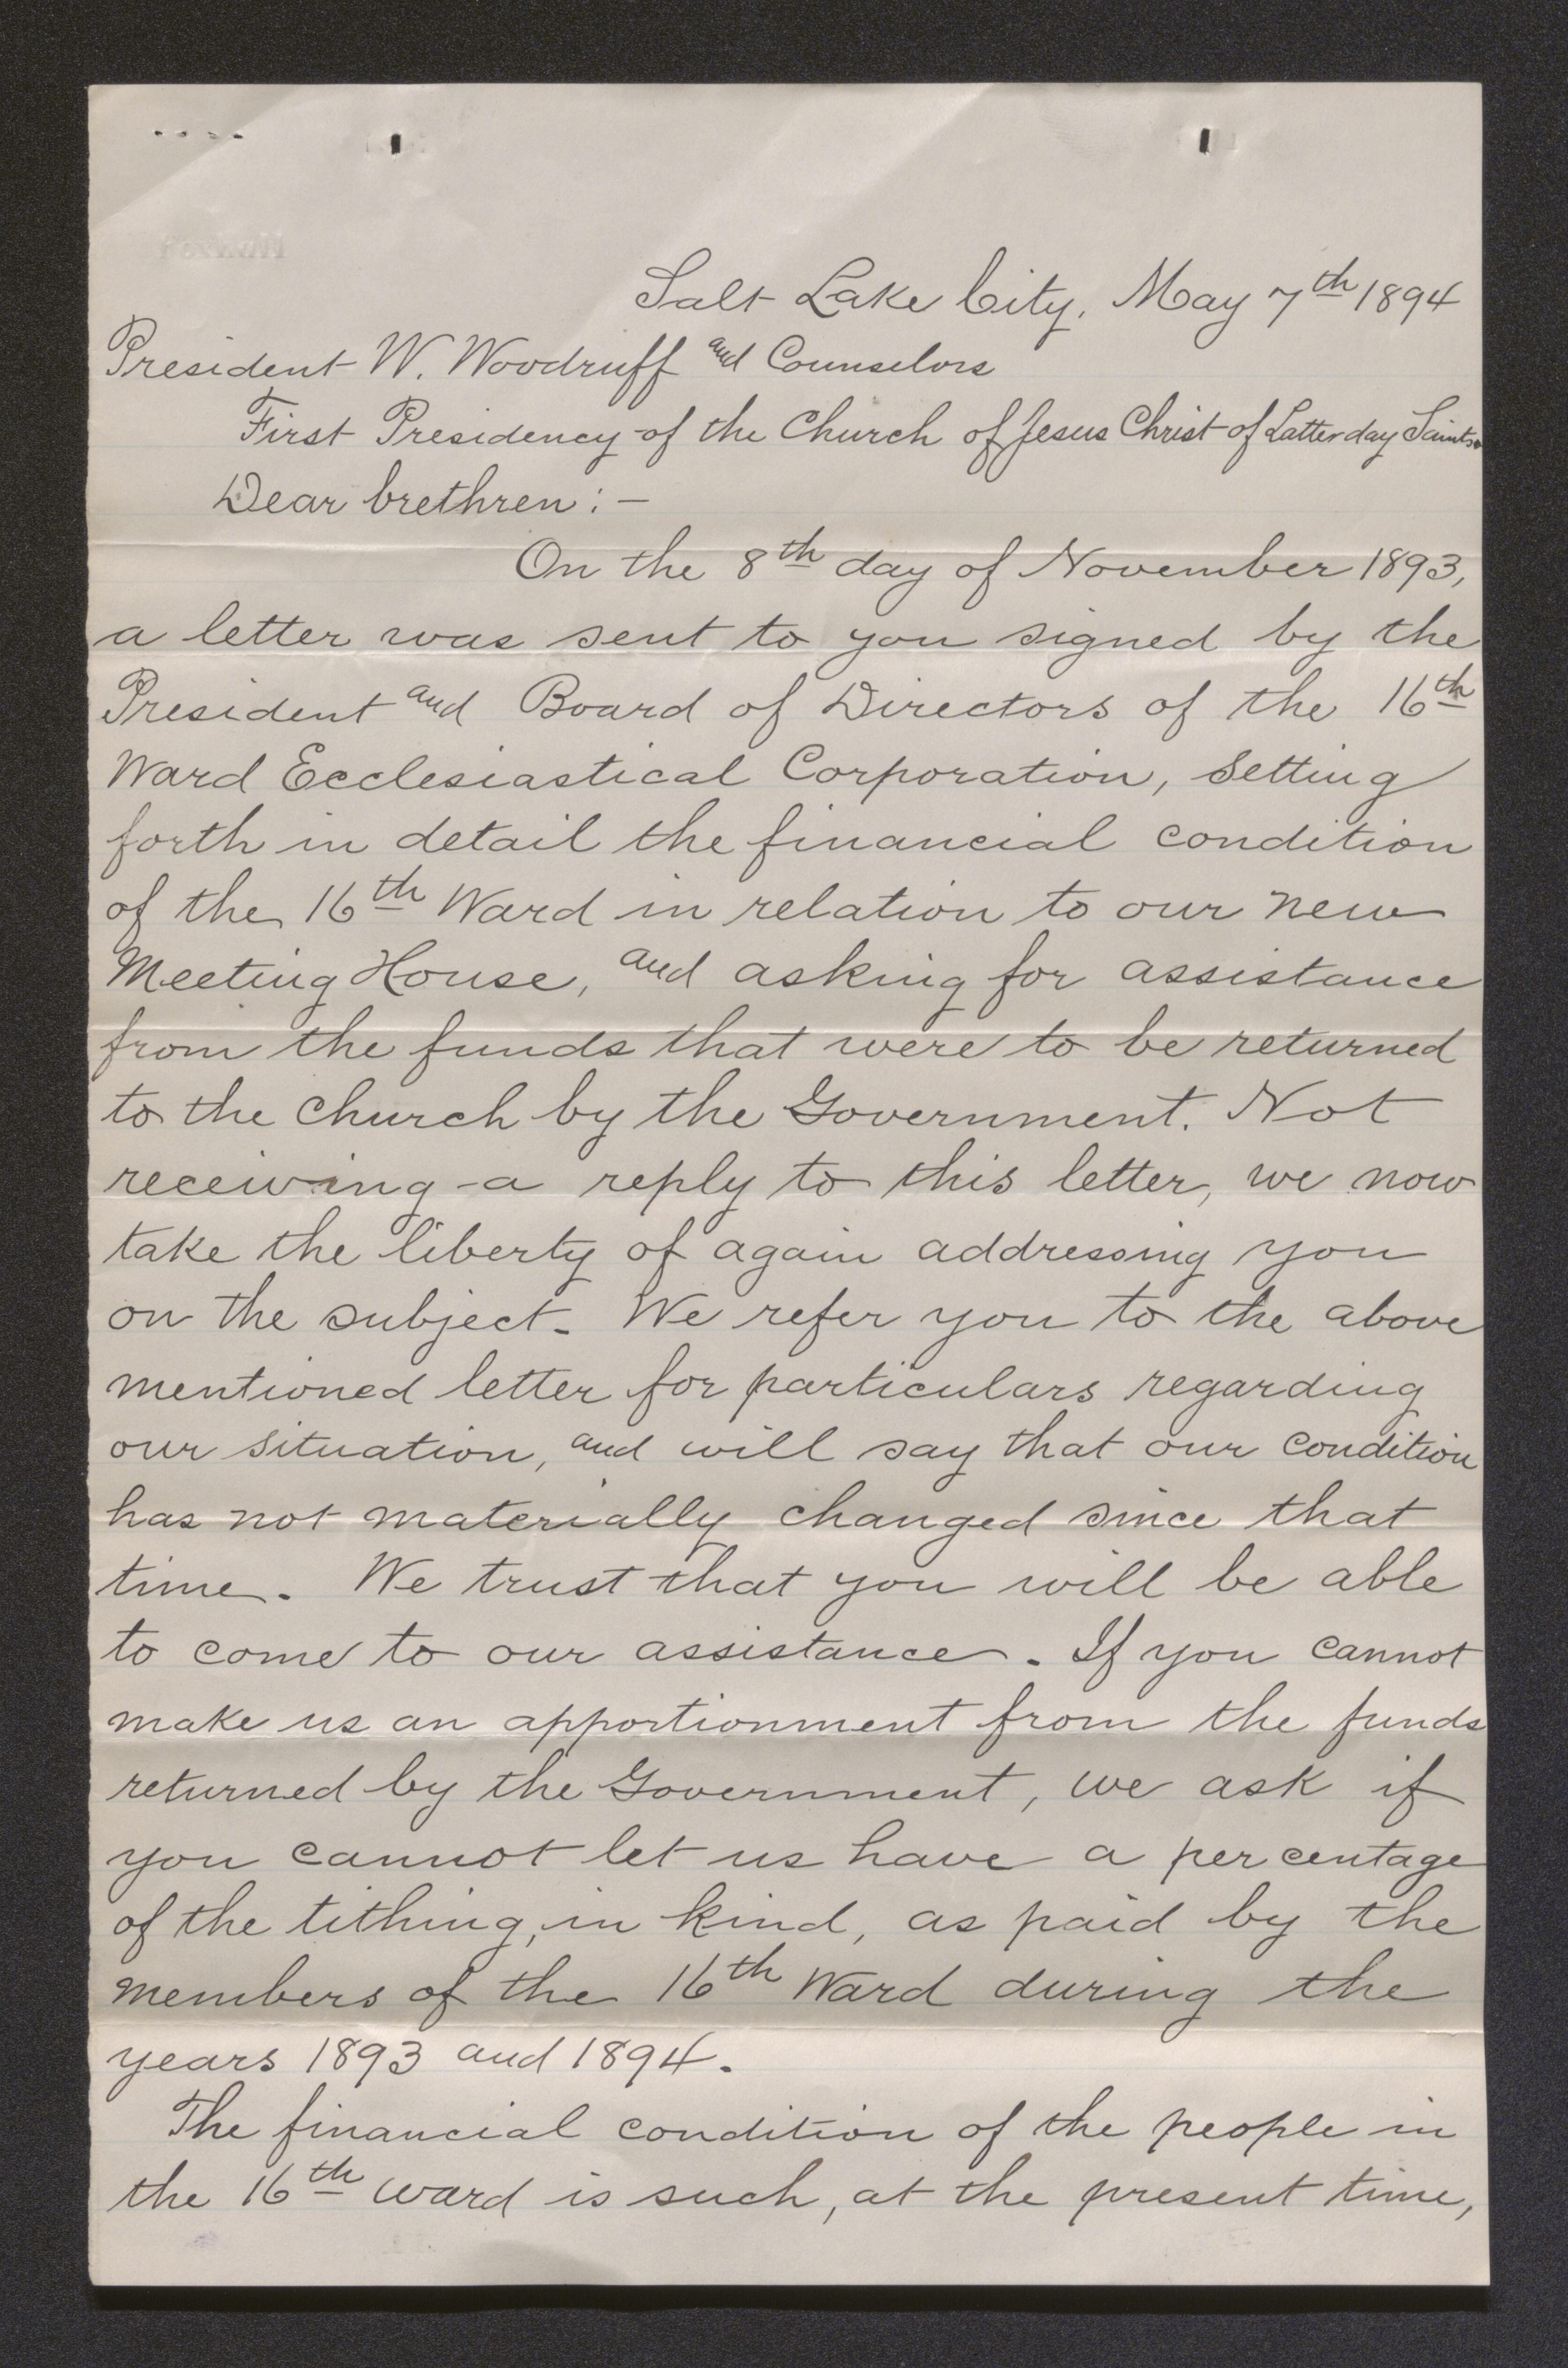 Salt Lake City, May 7th 1894
President W. Woodruff and Counselors
First Presidency of the Church of Jesus Christ of Latter day Saints.
Dear brethren:-
On the 8th day of November 1893,
a letter was sent to you signed by the
President and Board of Directors of the 16th
Ward Ecclesiastical Corporation, setting
forth in detail the financial condition
of the 16th Ward in relation to our new
Meeting House, and asking for assistance
from the funds that were to be returned
to the church by the Government. Not
receiving a reply to this letter, we now
take the liberty of again addressing you
on the subject. We refer you to the above
mentioned letter for particulars regarding
our situation, and will say that our condition
has not materially changed since that
time. We trust that you will be able
to come to our assistance. If you cannot
make us an apportionment from the funds
returned by the Government, we ask if
you cannot let us have a per centage
of the tithing, in kind, as paid by the
members of the 16th Ward during the
years 1893 and 1894.
The financial condition of the people in
the 16th ward is such, at the present time,